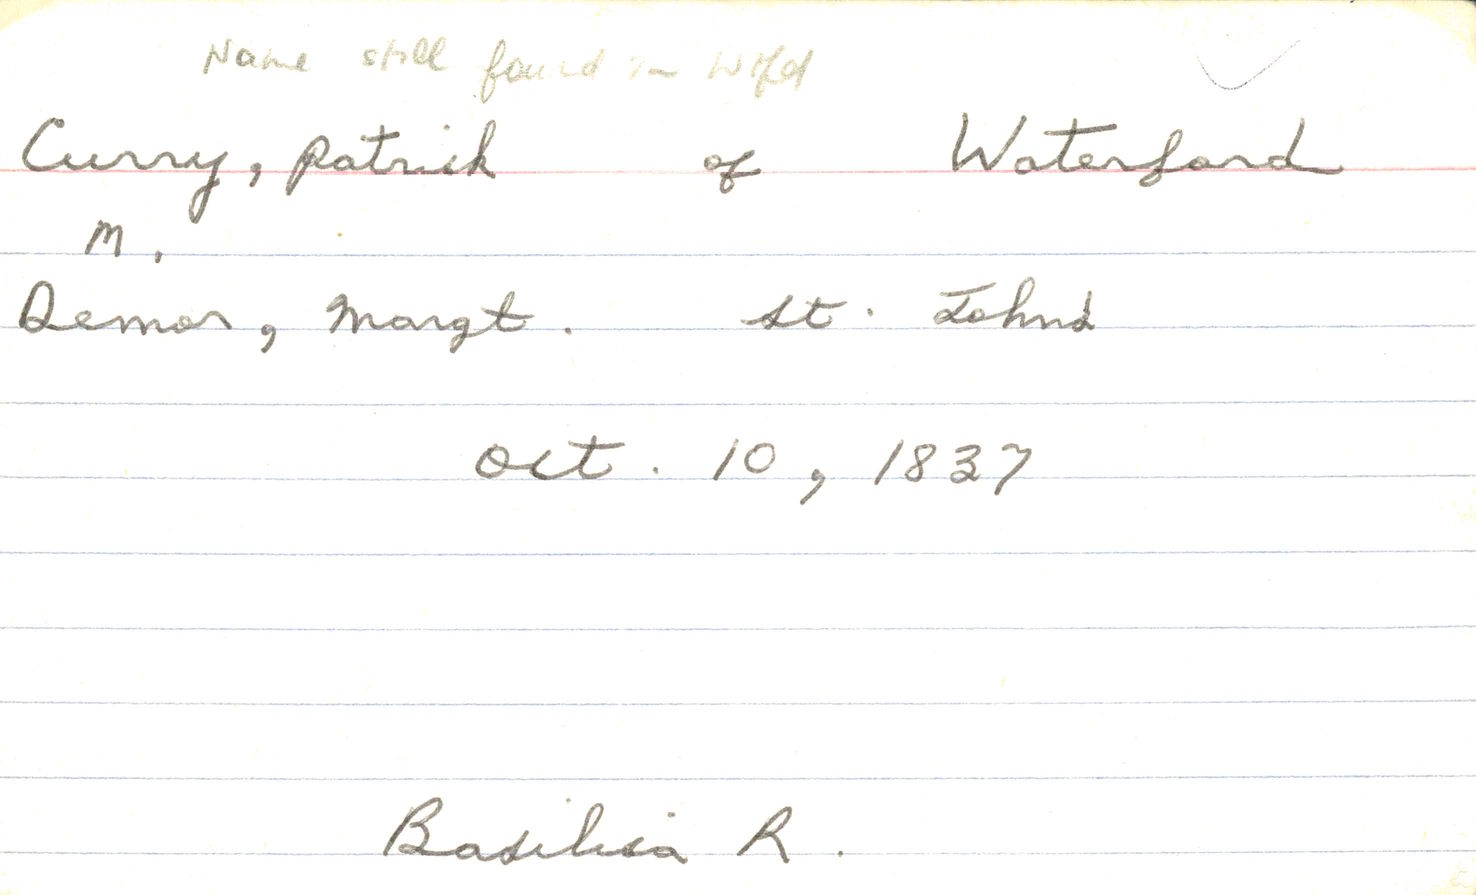 Name still found in Wfd
Curry, Patrick of Waterford
m.
Demor, Margt. St. Johns
Oct. 10, 1837
Basilica R.